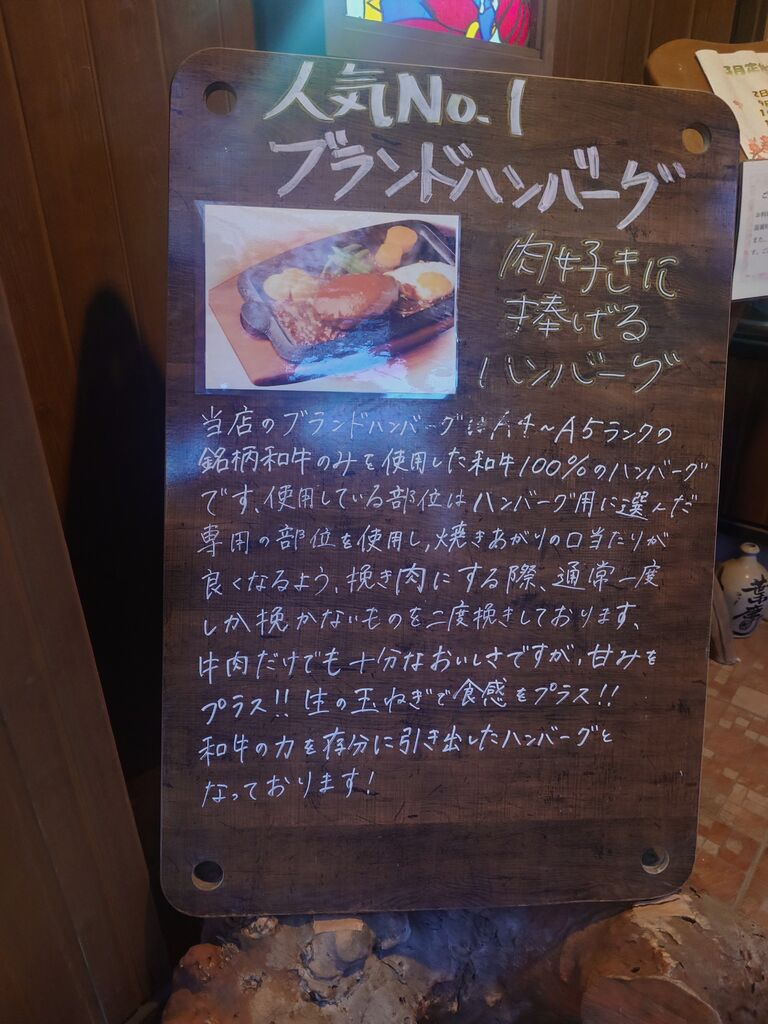 人気No.1
ブランドハンバーグ
肉好きに
捧げる
ハンバーグ
当店のブランドハンバーグはA4~A5ランクの
銘柄和牛のみを使用した和牛100%のハンバーグ
です、使用している部位はハンバーグ用に選んだ
専用の部位を使用し、焼きあがりの口当たりが
良くなるよう、挽き肉にする際、通常一度
しか挽かないものを二度挽きしております、
牛肉だけでも十分なおいしさですが、甘みを
プラス!!生の玉ねぎで食感をプラス!!
和牛の力を存分に引き出したハンバーグと
なっております!
3月定